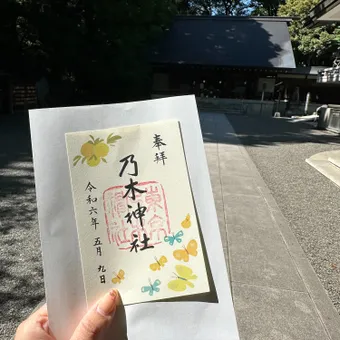 奉拝
乃木神社
令和六年五月九日